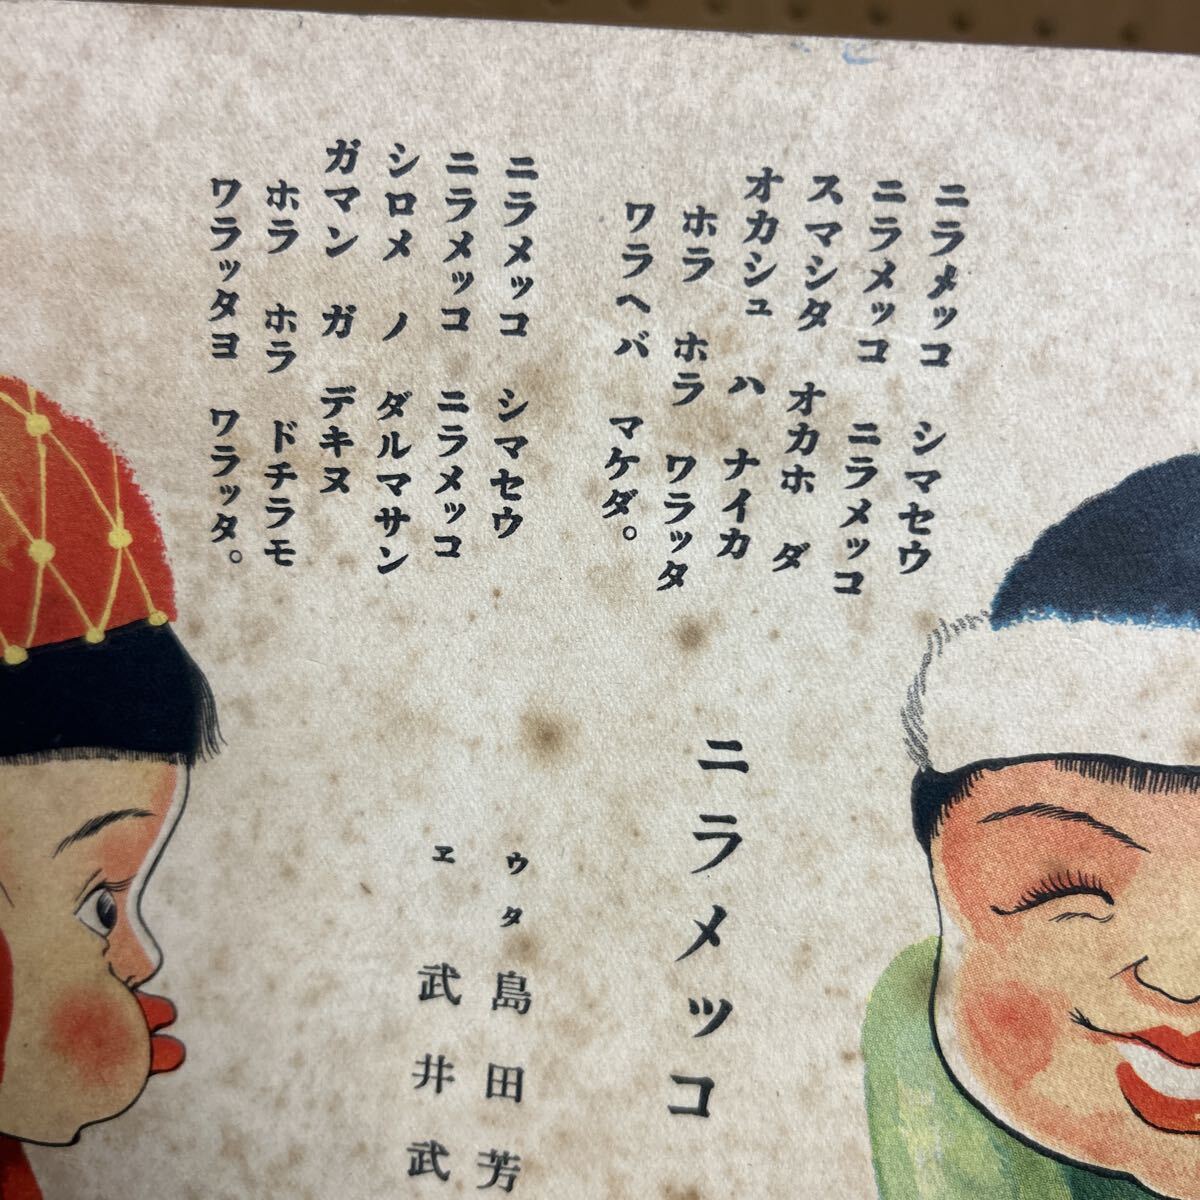 ニラメッコ シマセウ
ニラメッコ ニラメッコ
スマシタ オカホ ダ
オカシュ ハ ナイカ
ホラ ホラ ワラッタ
ワラヘバ マケダ。
ニラメッコ シマセウ
ニラメッコ ニラメッコ
シロメ ノ ダルマサン
ガマン ガ デキヌ
ホラ ホラ ドチラモ
ワラッタヨ ワラッタ。
ニラメッコ
ウタ 島田芳
ヱ 武井武